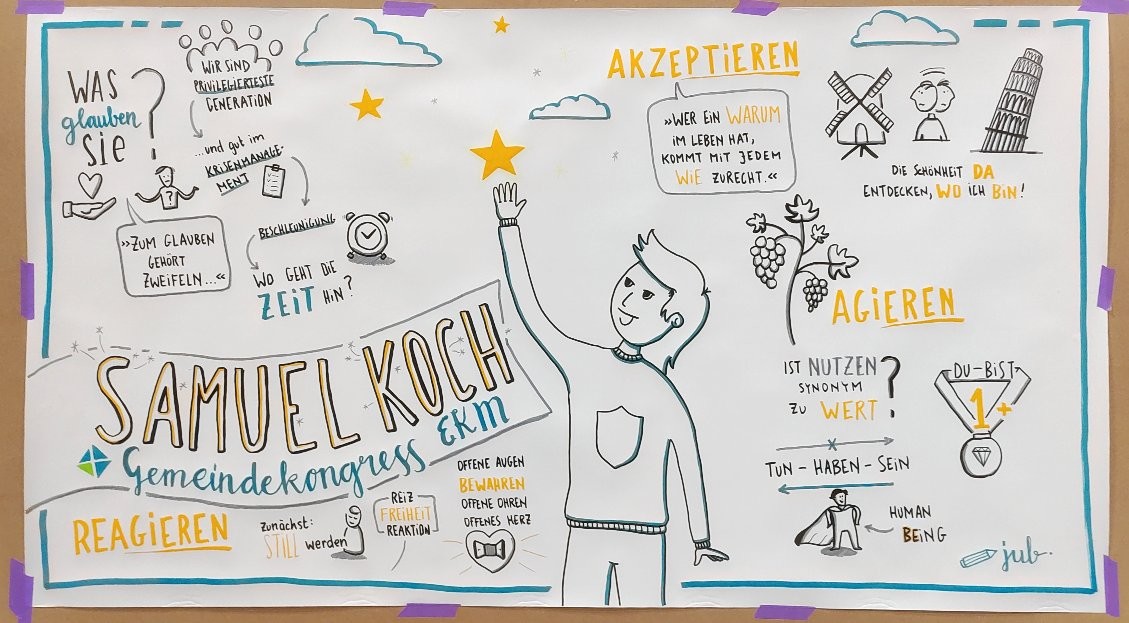 WAS
glauben
Sie
?
WIR SIND
PRIVILEGIERTESTE
GENERATION
...und gut im
KRISENMANAGE-
MENT
?
»ZUM GLAUBEN
GEHÖRT
ZWEIFELN...«
BESCHLEUNIGUNG
WO GEHT DIE
ZEIT HIN?
SAMUEL KOCH
Gemeindekongress EKM
REAGIEREN
Zunächst:
STILL werden
REIZ
FREIHEIT
REAKTION
OFFENE AUGEN
BEWAHREN
OFFENE OHREN
OFFENES HERZ
AKZEPTIEREN
»WER EIN WARUM
IM LEBEN HAT,
KOMMT MIT JEDEM
WIE ZURECHT.«
DIE SCHÖNHEIT DA
ENTDECKEN, WO ICH BIN!
AGIEREN
IST NUTZEN
SYNONYM
ZU WERT?
DU-BIST
1+
TUN - HABEN - SEIN
HUMAN
BEING
jub.